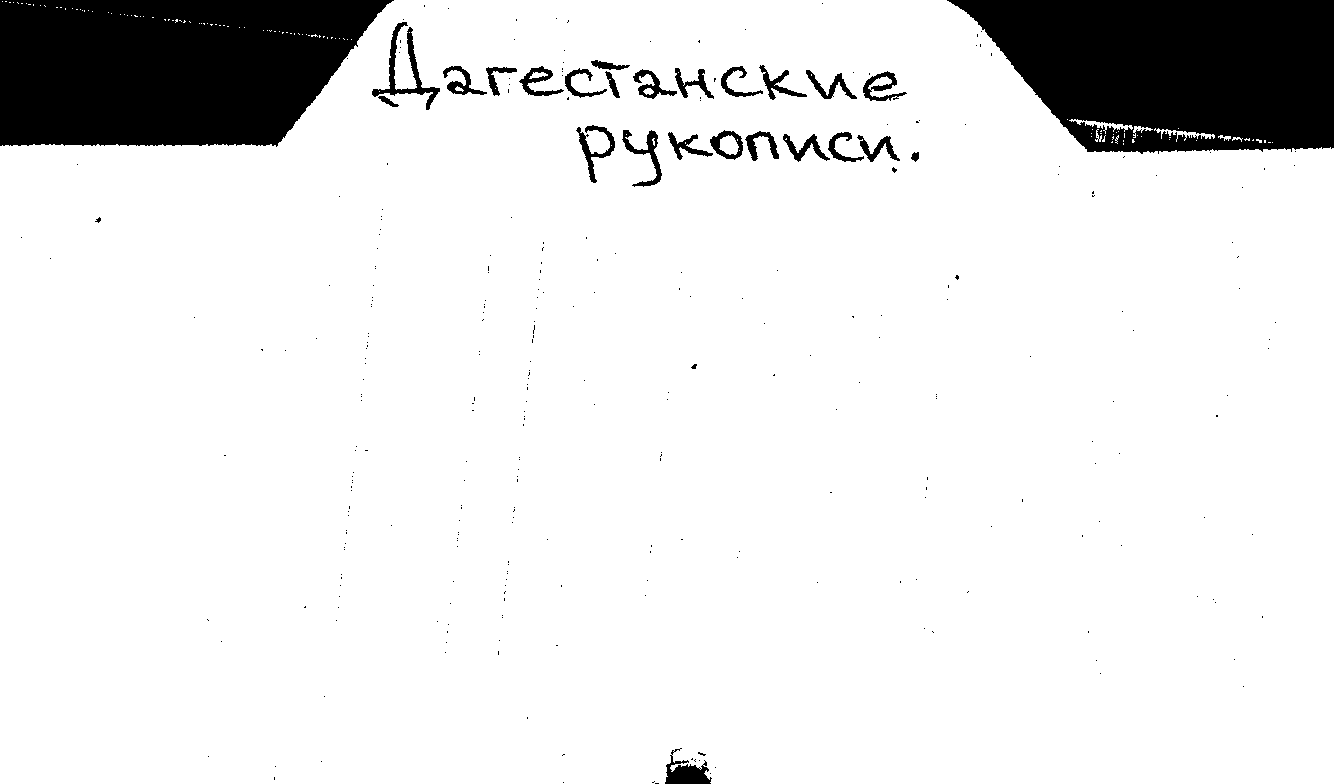 Дагестанские
рукописи.